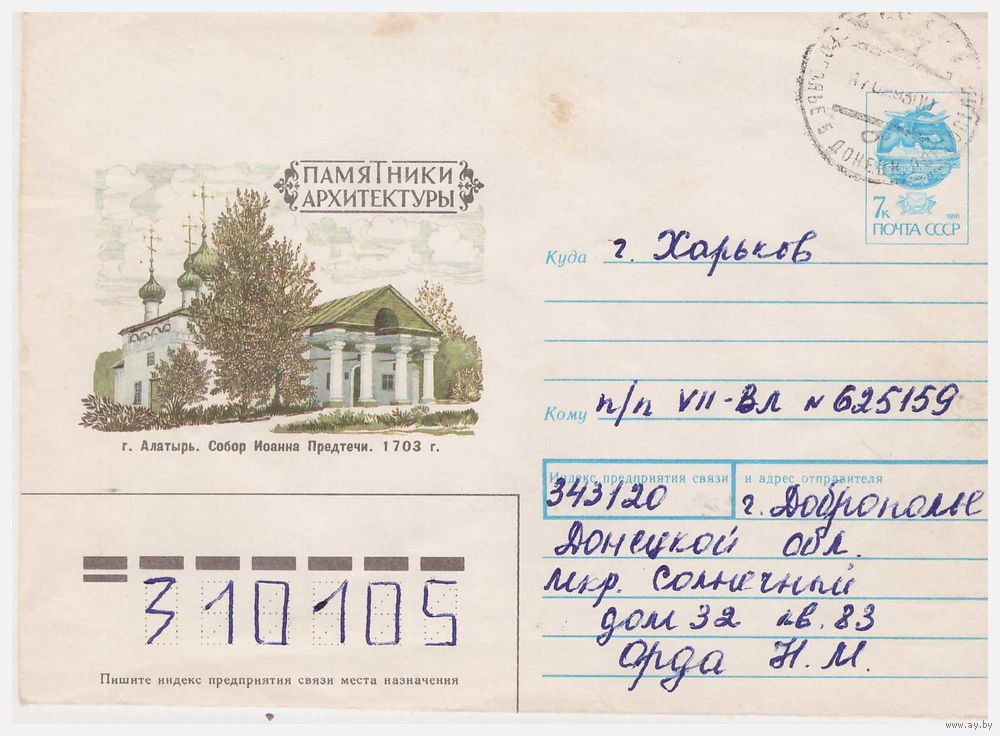 ПАМЯТНИКИ
АРХИТЕКТУРЫ
г. Алатырь. Собор Иоанна Предтечи. 1703 г.
7к 1991
ПОЧТА СССР
Куда г. Харьков
Кому п/п VII-ВЛ № 625159
Индекс предприятия связи и адрес отправителя
343120 г. Доброполье
Донецкой обл.
мкр. Солнечный
дом 32 кв. 83
Орда Н. М.
310105
Пишите индекс предприятия связи места назначения
www.ay.by